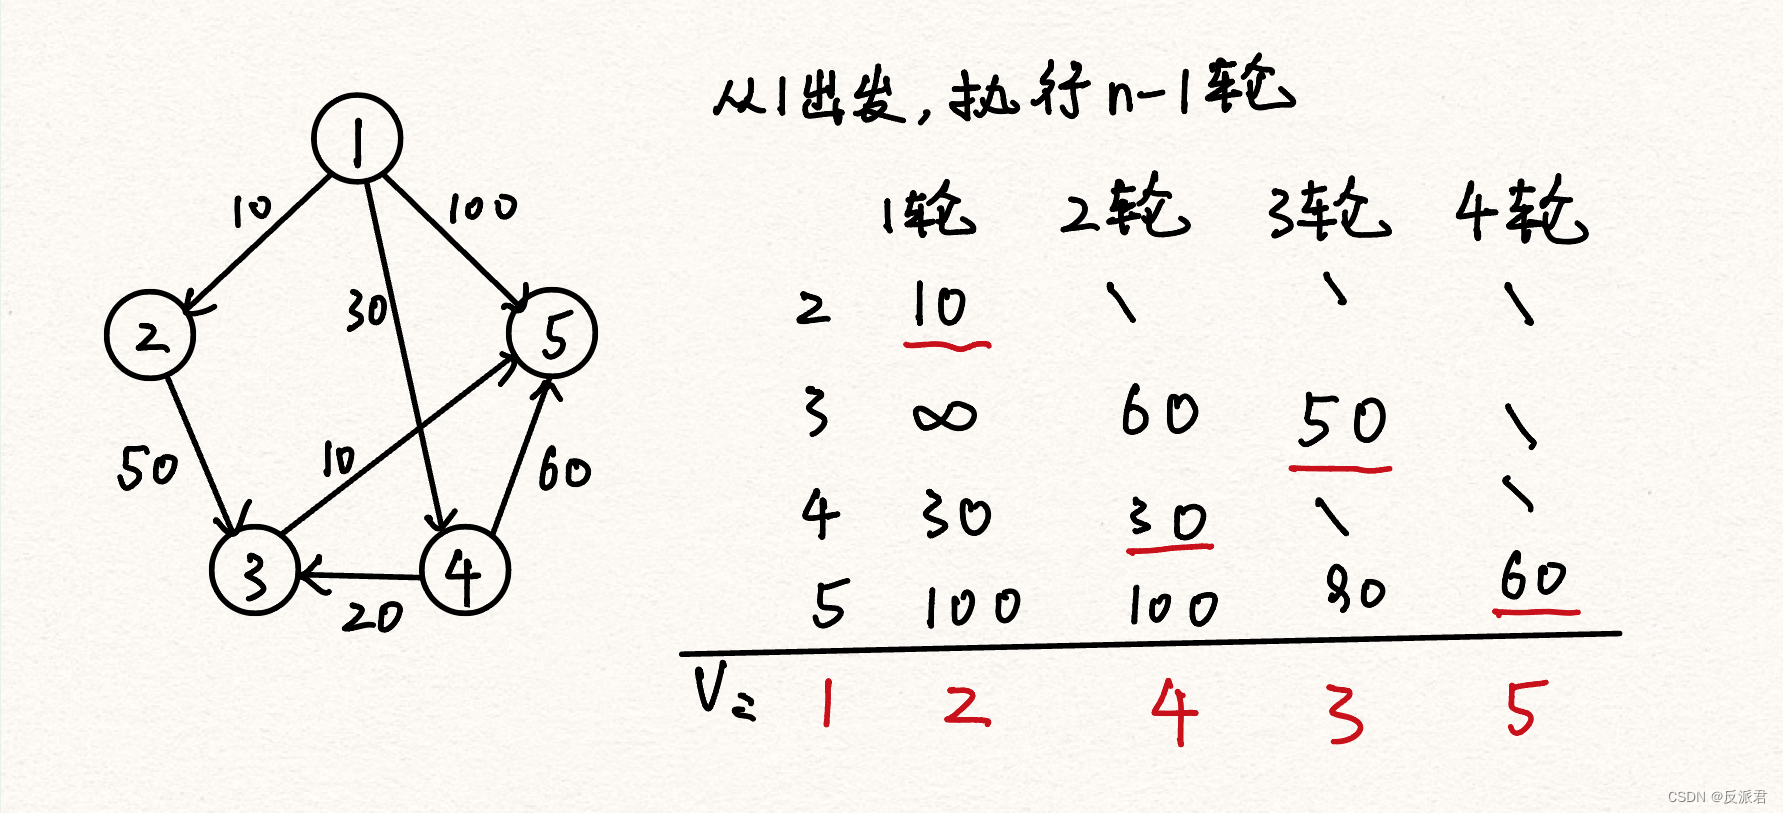 从1出发,执行n-1轮
1轮 2轮 3轮 4轮
2 10 \ \ \
3 ∞ 60 50 \
4 30 30 \ \
5 100 100 80 60
V= 1 2 4 3 5
1
10
100
30
2
5
50
10
60
3
4
20
CSDN @反派君